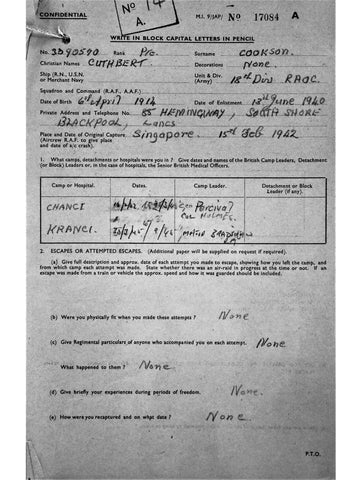 No 14
A.
CONFIDENTIAL
M.I. 9/JAP/ No 17084 A
WRITE IN BLOCK CAPITAL LETTERS IN PENCIL
No. 3290590 Rank Pte. Surname COOKSON.
Christian Names CUTHBERT Decorations None.
Ship (R.N., U.S.N. or Merchant Navy) Unit & Div. (Army) 18th Div RAOC.
Squadron and Command (R.A.F., A.A.F.)
Date of Birth 6th April 1914 Date of Enlistment 13th June 1940
Private Address and Telephone No. 85 HEMINGWAY, SOUTH SHORE
BLACKPOOL, Lancs
Place and Date of Original Capture Singapore. 15th Feb 1942
(Aircrew R.A.F. to give place
and date of a/c crash).
1. What camps, detachments or hospitals were you in ? Give dates and names of the British Camp Leaders, Detachment
(or Block) Leaders or, in the case of hospitals, the Senior British Medical Officers.
Camp or Hospital. Dates. Camp Leader. Detachment or Block Leader (if any).
CHANGI Gen Percival
Col HOLMES.
KRANCI.
2. ESCAPES OR ATTEMPTED ESCAPES. (Additional paper will be supplied on request if required).
(a) Give full description and approx. date of each attempt you made to escape, showing how you left the camp, and
from which camp each attempt was made. State whether there was an air-raid in progress at the time or not. If an
escape was made from a train or vehicle the approx. speed and how it was guarded should be included.
None
(b) Were you physically fit when you made these attempts ? None
(c) Give Regimental particulars of anyone who accompanied you on each attempt. None
What happened to them ? None
(d) Give briefly your experiences during periods of freedom. None.
(e) How were you recaptured and on what date ? None
P.T.O.